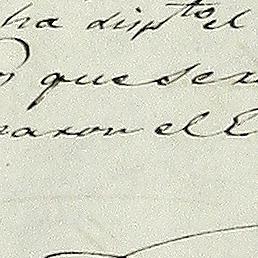 ha dispto el
que se
raron el E